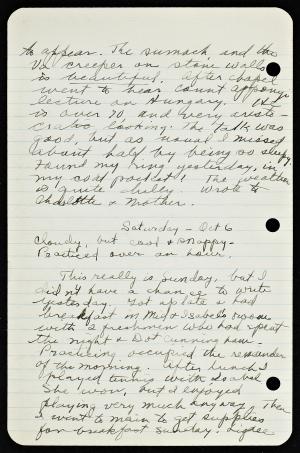 to appear. The sumach and the
Va creeper on stone walls
is beautiful. After chapel
went to hear Count Apponyi
lecture on Hungary. He
is over 70, and very aristo-
cratic looking. The talk was
good, but as usual I missed
about half by being so sleepy.
Found my ring yesterday, in
my coat pocket! The weather
is quite chilly. Wrote to
Charlotte & Mother.
Saturday - Oct 6
Cloudy, but cool & snappy.
Practiced over an hour.
This really is Sunday, but I
didn't have a chance to write
yesterday. Got up late & had
breakfast in Med & Isabel's room
with 2 freshmen who had spent
the night & Dot Cunningham.
Practicing occupied the remainder
of the morning. After lunch I
played tennis with Isabel
She won, but I enjoyed
playing very much anyway. Then
I went to main to get supplies
for breakfast Sunday.